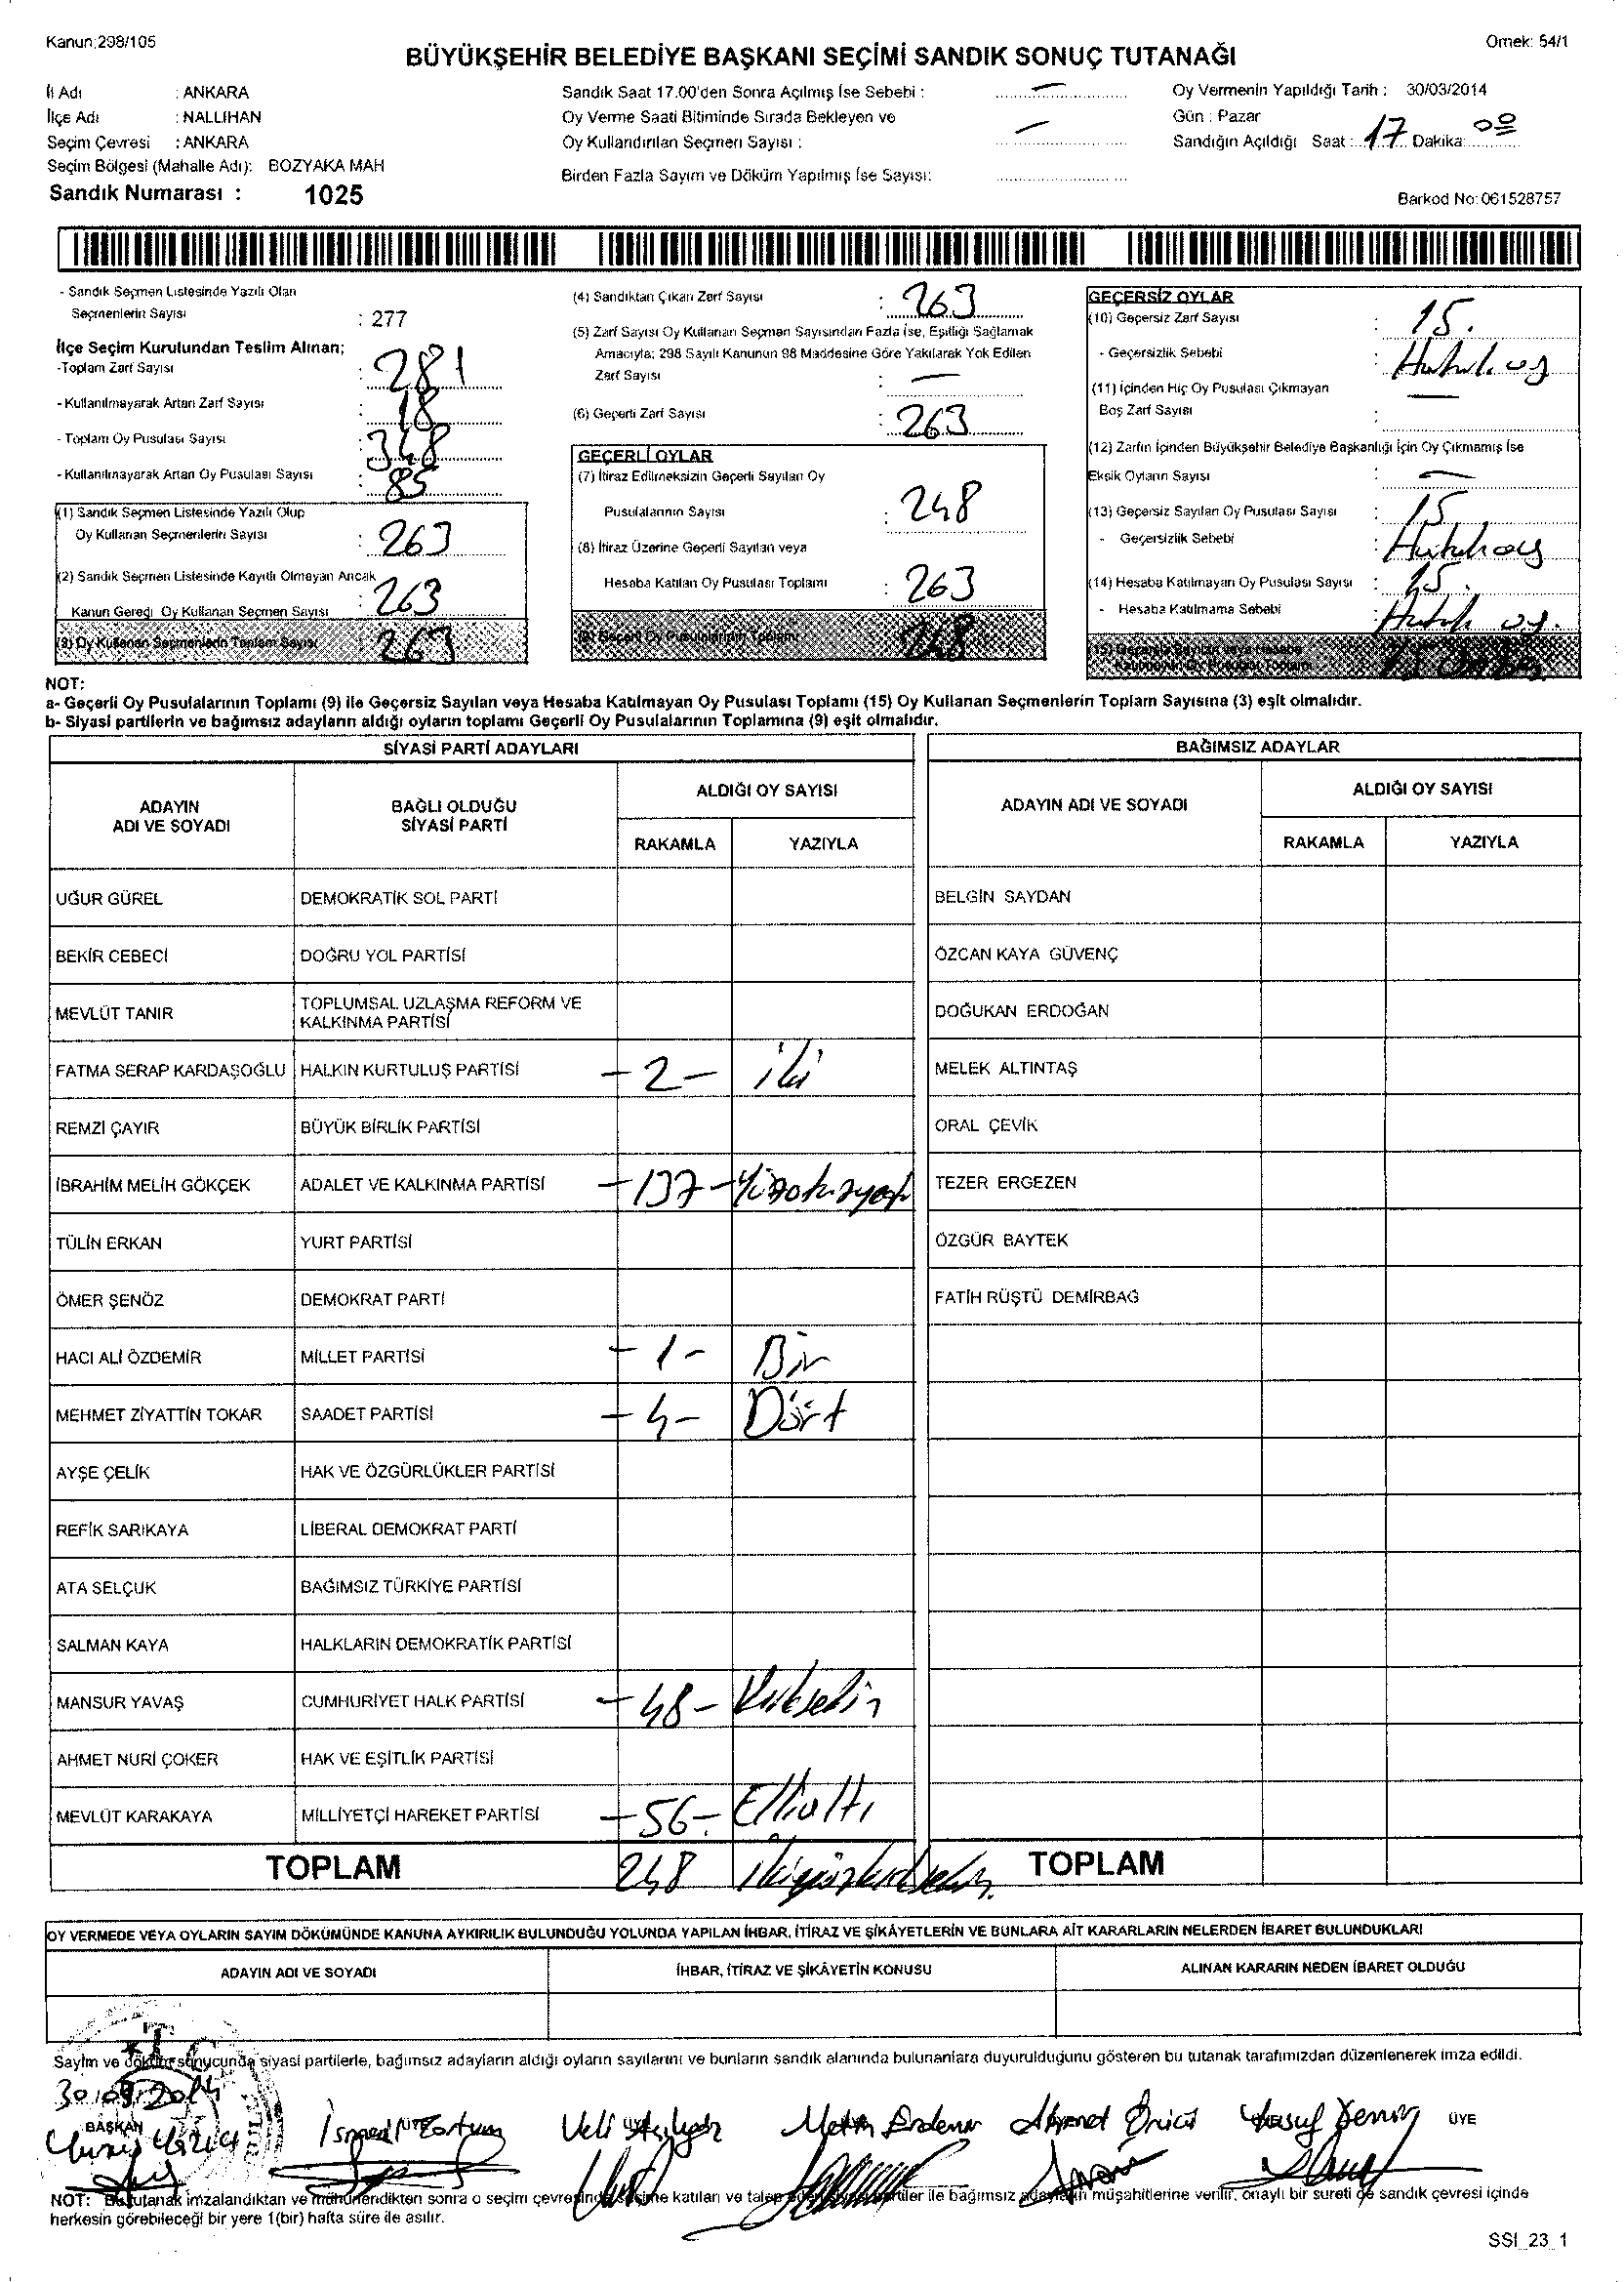 Kanun:298/105
Örnek: 54/1
BÜYÜKŞEHİR BELEDİYE BAŞKANI SEÇİMİ SANDIK SONUÇ TUTANAĞI
İl Adı : ANKARA
İlçe Adı : NALLIHAN
Seçim Çevresi : ANKARA
Seçim Bölgesi (Mahalle Adı): BOZYAKA MAH
Sandık Numarası : 1025
Sandık Saat 17.00'den Sonra Açılmış İse Sebebi : —
Oy Verme Saati Bitiminde Sırada Bekleyen ve
Oy Kullandırılan Seçmen Sayısı : —
Birden Fazla Sayım ve Döküm Yapılmış İse Sayısı:
Oy Vermenin Yapıldığı Tarih : 30/03/2014
Gün : Pazar
Sandığın Açıldığı Saat : 17 Dakika: 00
Barkod No:061528757
- Sandık Seçmen Listesinde Yazılı Olan
Seçmenlerin Sayısı : 277
İlçe Seçim Kurulundan Teslim Alınan;
-Toplam Zarf Sayısı : 281
- Kullanılmayarak Artan Zarf Sayısı : 18
- Toplam Oy Pusulası Sayısı : 348
- Kullanılmayarak Artan Oy Pusulası Sayısı : 85
(1) Sandık Seçmen Listesinde Yazılı Olup
Oy Kullanan Seçmenlerin Sayısı : 263
(2) Sandık Seçmen Listesinde Kayıtlı Olmayan Ancak
Kanun Gereği Oy Kullanan Seçmen Sayısı : 263
(3) Oy Kullanan Seçmenlerin Toplam Sayısı 263
(4) Sandıktan Çıkan Zarf Sayısı : 263
(5) Zarf Sayısı Oy Kullanan Seçmen Sayısından Fazla İse, Eşitliği Sağlamak
Amacıyla; 298 Sayılı Kanunun 98 Maddesine Göre Yakılarak Yok Edilen
Zarf Sayısı : —
(6) Geçerli Zarf Sayısı : 263
GEÇERLİ OYLAR
(7) İtiraz Edilmeksizin Geçerli Sayılan Oy
Pusulalarının Sayısı : 248
(8) İtiraz Üzerine Geçerli Sayılan veya
Hesaba Katılan Oy Pusulası Toplamı : 263
(9) Geçerli Oy Pusulalarının Toplamı 248
GEÇERSİZ OYLAR
(10) Geçersiz Zarf Sayısı : 15.
- Geçersizlik Sebebi :
(11) İçinden Hiç Oy Pusulası Çıkmayan
Boş Zarf Sayısı : —
(12) Zarfın İçinden Büyükşehir Belediye Başkanlığı İçin Oy Çıkmamış İse
Eksik Oyların Sayısı : —
(13) Geçersiz Sayılan Oy Pusulası Sayısı : 15
- Geçersizlik Sebebi :
(14) Hesaba Katılmayan Oy Pusulası Sayısı : 15.
- Hesaba Katılmama Sebebi :
(15) Geçersiz Sayılan veya Hesaba
Katılmayan Oy Pusulası Toplamı 15
NOT:
a- Geçerli Oy Pusulalarının Toplamı (9) ile Geçersiz Sayılan veya Hesaba Katılmayan Oy Pusulası Toplamı (15) Oy Kullanan Seçmenlerin Toplam Sayısına (3) eşit olmalıdır.
b- Siyasi partilerin ve bağımsız adayların aldığı oyların toplamı Geçerli Oy Pusulalarının Toplamına (9) eşit olmalıdır.
SİYASİ PARTİ ADAYLARI
ADAYIN ADI VE SOYADI BAĞLI OLDUĞU SİYASİ PARTİ ALDIĞI OY SAYISI
RAKAMLA YAZIYLA
UĞUR GÜREL DEMOKRATİK SOL PARTİ
BEKİR CEBECİ DOĞRU YOL PARTİSİ
MEVLÜT TANIR TOPLUMSAL UZLAŞMA REFORM VE KALKINMA PARTİSİ
FATMA SERAP KARDAŞOĞLU HALKIN KURTULUŞ PARTİSİ -2- iki
REMZİ ÇAYIR BÜYÜK BİRLİK PARTİSİ
İBRAHİM MELİH GÖKÇEK ADALET VE KALKINMA PARTİSİ -137- Yüzotuzyedi
TÜLİN ERKAN YURT PARTİSİ
ÖMER ŞENÖZ DEMOKRAT PARTİ
HACI ALİ ÖZDEMİR MİLLET PARTİSİ -1- Bir
MEHMET ZİYATTİN TOKAR SAADET PARTİSİ -4- Dört
AYŞE ÇELİK HAK VE ÖZGÜRLÜKLER PARTİSİ
REFİK SARIKAYA LİBERAL DEMOKRAT PARTİ
ATA SELÇUK BAĞIMSIZ TÜRKİYE PARTİSİ
SALMAN KAYA HALKLARIN DEMOKRATİK PARTİSİ
MANSUR YAVAŞ CUMHURİYET HALK PARTİSİ -48- Kırksekiz
AHMET NURİ ÇOKER HAK VE EŞİTLİK PARTİSİ
MEVLÜT KARAKAYA MİLLİYETÇİ HAREKET PARTİSİ -56- Ellialtı
TOPLAM 248 İkiyüzkırksekiz
BAĞIMSIZ ADAYLAR
ADAYIN ADI VE SOYADI ALDIĞI OY SAYISI
RAKAMLA YAZIYLA
BELGİN SAYDAN
ÖZCAN KAYA GÜVENÇ
DOĞUKAN ERDOĞAN
MELEK ALTINTAŞ
ORAL ÇEVİK
TEZER ERGEZEN
ÖZGÜR BAYTEK
FATİH RÜŞTÜ DEMİRBAĞ
TOPLAM
OY VERMEDE VEYA OYLARIN SAYIM DÖKÜMÜNDE KANUNA AYKIRILIK BULUNDUĞU YOLUNDA YAPILAN İHBAR, İTİRAZ VE ŞİKÂYETLERİN VE BUNLARA AİT KARARLARIN NELERDEN İBARET BULUNDUKLARI
ADAYIN ADI VE SOYADI İHBAR, İTİRAZ VE ŞİKÂYETİN KONUSU ALINAN KARARIN NEDEN İBARET OLDUĞU
Sayım ve döküm sonucunda siyasi partilerle, bağımsız adayların aldığı oyların sayılarını ve bunların sandık alanında bulunanlara duyurulduğunu gösteren bu tutanak tarafımızdan düzenlenerek imza edildi.
30.03.2014
BAŞKAN ÜYE ÜYE ÜYE
İsmail Veli Metin Erdemir Ahmet Yusuf
NOT: Bu tutanak imzalandıktan ve mühürlendikten sonra o seçim çevresinde seçime katılan ve talep eden siyasi partiler ile bağımsız adayların müşahitlerine verilir, onaylı bir sureti de sandık çevresi içinde
herkesin görebileceği bir yere 1(bir) hafta süre ile asılır.
SSI_23_1